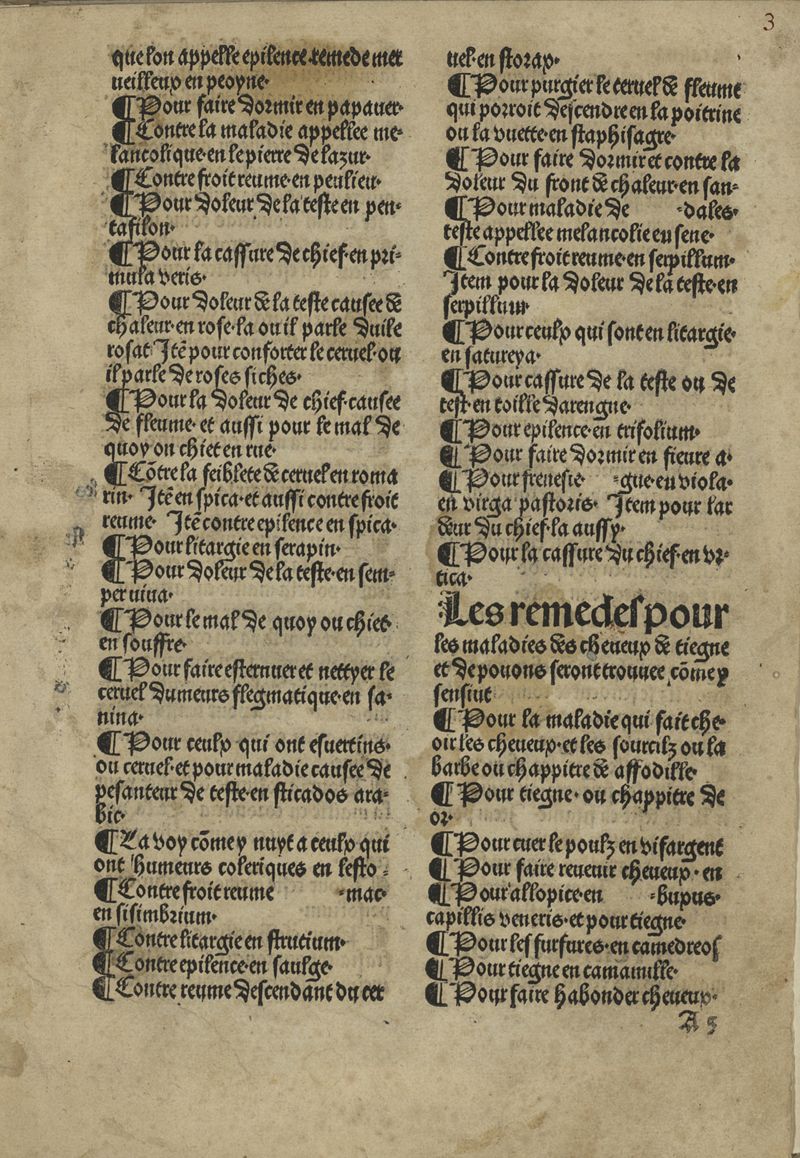 3
que lon appelle epilence·remede mer
ueilleux en peoyne·
¶ Pour faire dormir en papauer·
¶ Contre la maladie appellee me-
lancolique·en le pierre de lazur·
¶ Contre froit reume·en peulieu·
¶ Pour doleur de la teste en pen-
tafilon·
¶ Pour la cassure de chief·en pri-
mula veris·
¶ Pour doleur de la teste causee de
chaleur·en rose·la ou il parle duile
rosat Itē pour conforter le ceruel·ou
il parle de roses siches·
¶ Pour la doleur de chief·causee
de fleume·et aussi pour le mal de
quoy on chiet en rue·
¶ Cōtre la feiblete de ceruel en roma
rin· Itē en spica·et aussi contre froit
reume· Itē contre epilence en spica·
¶ Pour litargie en serapin·
¶ Pour doleur de la teste·en sem-
peruiua·
¶ Pour le mal de quoy on chiet·
en souffre·
¶ Pour faire esternuer et nettyer le
ceruel dumeurs flegmatique·en sa·
uina·
¶ Pour ceulx qui ont esuertins·
ou ceruel·et pour maladie causee de
pesanteur de teste·en sticados ara-
bic·
¶ La voy cōme y nuyt a ceulx qui
ont humeurs coleriques en lesto-
¶ Contre froit reume -mac·
en sisimbrium·
¶ Contre litargie en strucium·
¶ Contre epilēce·en saulge·
¶ Contre reume descendant du cer
uel·en storax·
¶ Pour purgier le ceruel de fleume
qui porroit descendre en la poitrine
ou la vuette·en staphisagre·
¶ Pour faire dormir et contre la
doleur du front de chaleur·en san-
¶ Pour maladie de -dales·
teste appellee melancolie en sene·
¶ Contre froit reume·en serpillum·
Item pour la doleur de la teste·en
serpillum·
¶ Pour ceulx qui sont en litargie·
en satureya·
¶ Pour cassure de la teste ou de
test·en toille darengne·
¶ Pour epilence·en trifolium·
¶ Pour faire dormir en fieure a·
¶ Pour frenesie -gue·en viola·
en virga pastoris· Item pour lar
deur du chief·la aussy·
¶ Pour la cassure du chief·en vr-
tica·
Les remedes pour
les maladies des cheueux de tiegne
et de pouons seront trouuee cōme y
sensiut
¶ Pour la maladie qui fait che·
oir les cheueux·et les sourcilz ou la
barbe ou chappitre de affodille·
¶ Pour tiegne·ou chappitre de
or·
¶ Pour tuer le poulz en vifargent
¶ Pour faire reuenir cheueux·en
¶ Pour allopice·en -bupus·
capillis veneris·et pour tiegne·
¶ Pour les furfures·en camedreos
¶ Pour tiegne en camamille·
¶ Pour faire habonder cheueux·
A 5